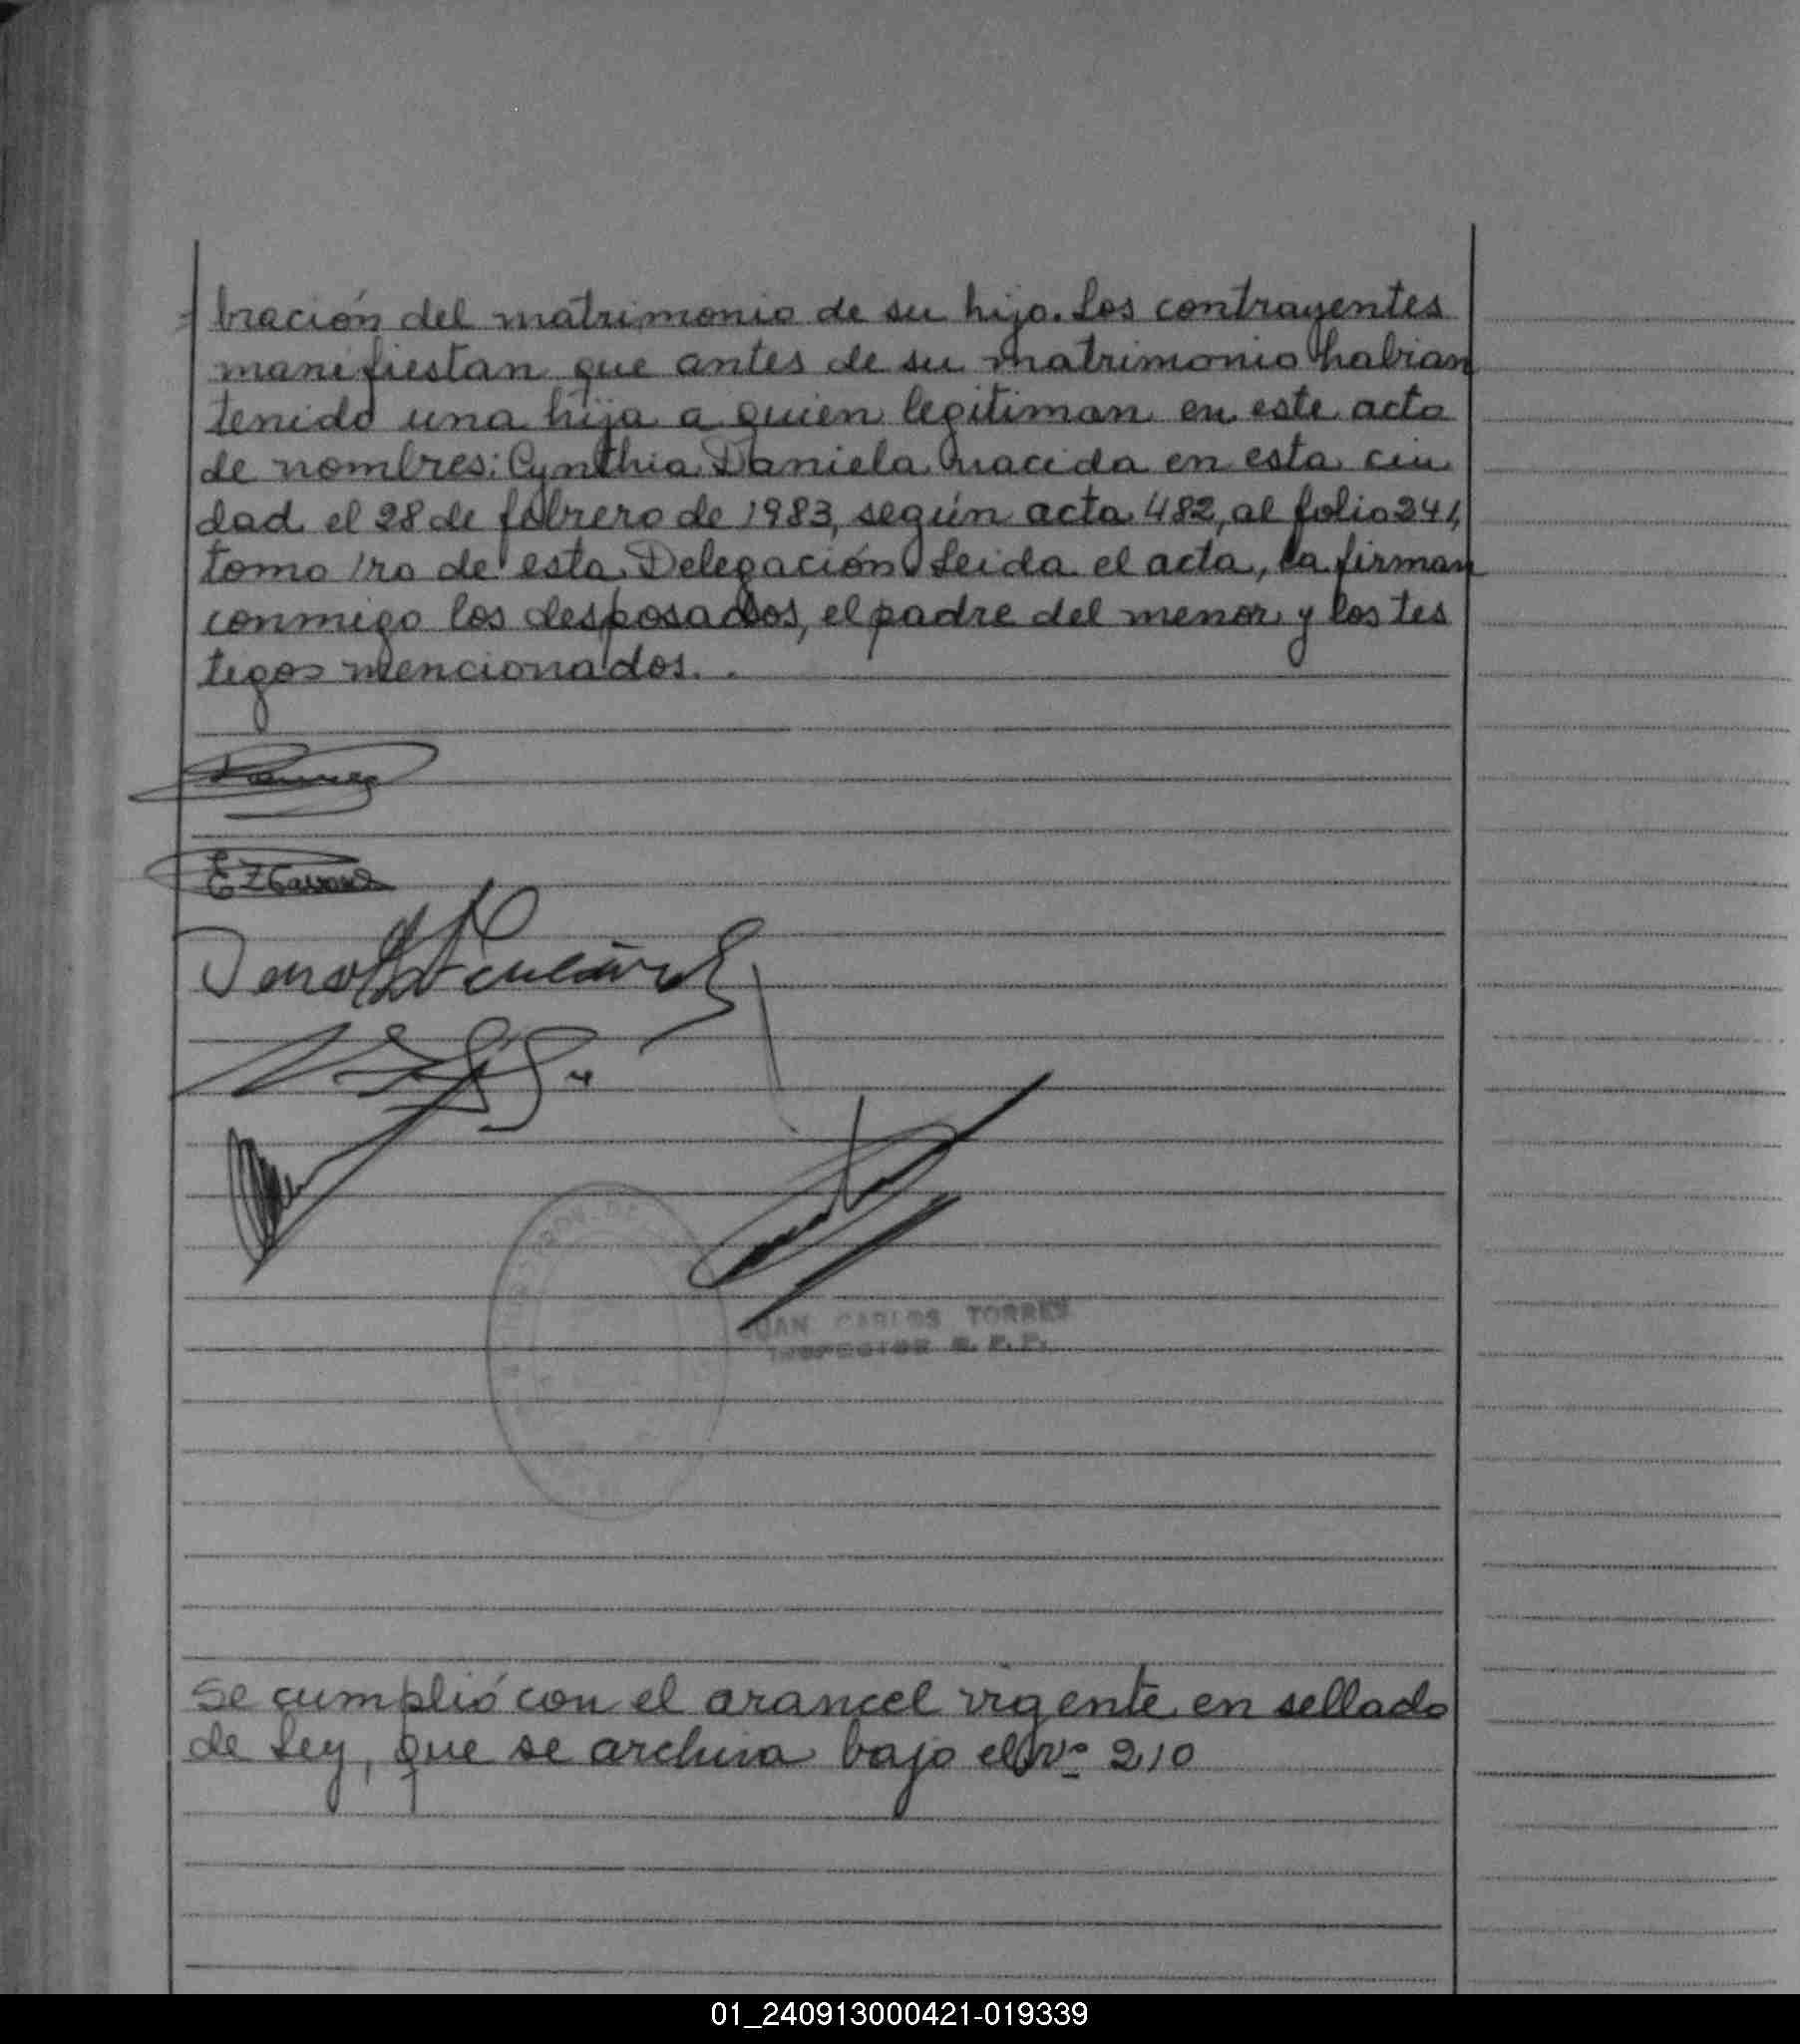 =bración del matrimonio de su hijo. Los contrayentes
manifiestan que antes de su matrimonio habian
tenido una hija a quien legitiman en este acto
de nombres: Cynthia Daniela nacida en esta ciu
dad el 28 de febrero de 1983, según acta 482, al folio 241,
tomo 1ro de esta Delegación. Leida el acta, la firman
conmigo los desposados, el padre del menor y los tes
tigos mencionados. .
JUAN CARLOS TORRES
INSPECTOR
Se cumplió con el arancel vigente en sellado
de Ley, que se archiva bajo el Nº 210
01_240913000421-019339